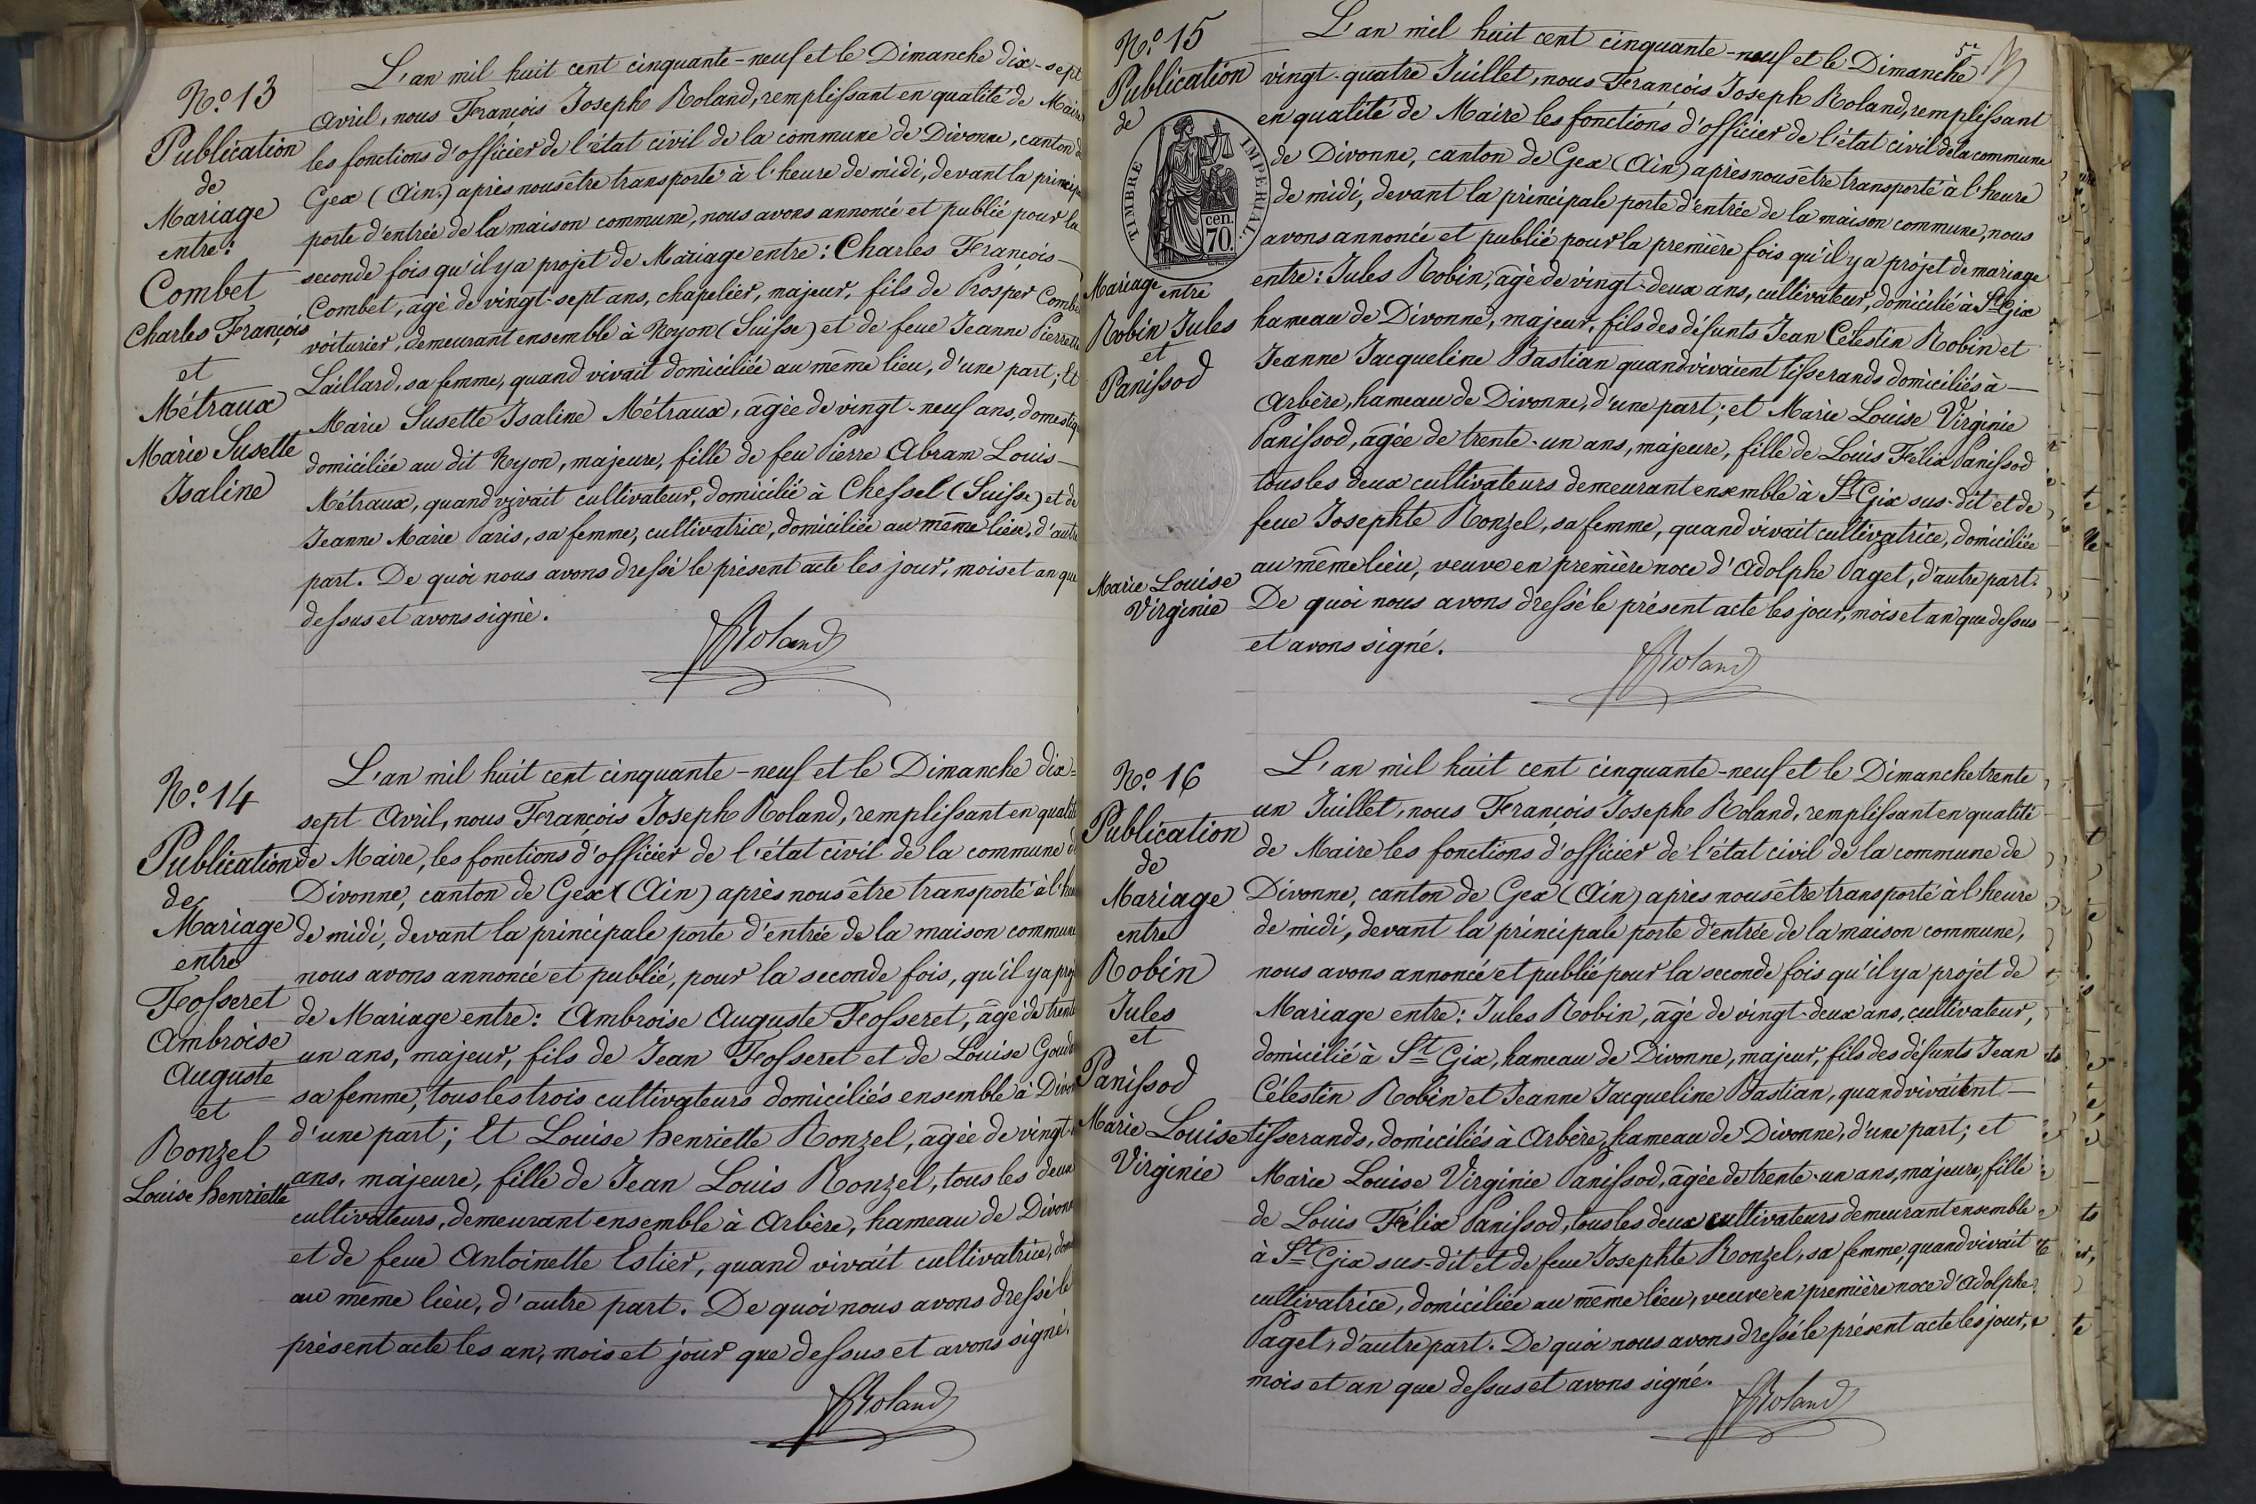 N.º 13
Publication
de
Mariage
entre:
Combet
Charles François
et
Métraux
Marie Susette
Isaline
L'an mil huit cent cinquante-neuf et le Dimanche dix-sept
avril, nous François Joseph Roland, remplissant en qualité de Maire
les fonctions d'officier de l'état civil de la commune de Divonne, canton de
Gex (Ain.) après nous être transporté à l'heure de midi, devant la princip
porte d'entrée de la maison commune, nous avons annoncé et publié pour la
seconde fois qu'il y a projet de Mariage entre: Charles François
Combet, agé de vingt-sept ans, chapelier, majeur, fils de Prosper Combe
voiturier, demeurant ensemble à Nyon (Suisse) et de feue Jeanne Pierrette
Laillard, sa femme, quand vivait domiciliée au même lieu, d'une part; Et
Marie Susette Isaline Métraux, agée de vingt-neuf ans, domestiq
domiciliée au dit Nyon, majeure, fille de feu Pierre Abram Louis
Métraux, quand vivait cultivateur, domicilié à Chessel (Suisse) et de
Jeanne Marie Paris, sa femme, cultivatrice, domiciliée au même lieu, d'autre
part. De quoi nous avons dressé le présent acte les jour, mois et an que
dessus et avons signé.
JfRoland
N.º 14
Publication
de
Mariage
entre
Fosseret
Ambroise
Auguste
et
Ronzel
Louise henriette
L'an mil huit cent cinquante-neuf et le Dimanche dix=
sept Avril, nous François Joseph Roland, remplissant en qualité
de Maire, les fonctions d'officier de l'état civil de la commune de
Divonne, canton de Gex (Ain) après nous être transporté à l'heu
de midi, devant la principale porte d'entrée de la maison commune
nous avons annoncé et publié, pour la seconde fois, qu'il y a proj
de Mariage entre: Ambroise Auguste Fosseret, agé de trente
un ans, majeur, fils de Jean Fosseret et de Louise Goud
sa femme, tous les trois cultivateurs domiciliés ensemble à Divon
d'une part; Et Louise henriette Ronzel, agée de vingt
ans, majeure, fille de Jean Louis Ronzel, tous les deux
cultivateurs, demeurant ensemble à Arbère, hameau de Divonne
et de feue Antoinette Estier, quand vivait cultivatrice, dom
au même lieu, d'autre part. De quoi nous avons dressé le
présent acte les an, mois et jour que dessus et avons signé.
JfRoland
5e
N.º 15
Publication
de
TIMBRE IMPERIAL.
cen.
70.
Mariage entre
Robin Jules
et
Panissod
Marie Louise
Virginie
L'an mil huit cent cinquante-neuf et le Dimanche
vingt-quatre Juillet, nous François Joseph Roland, remplissant
en qualité de Maire les fonctions d'officier de l'état civil de la commune
de Divonne, canton de Gex (Ain) après nous être transporté à l'heure
de midi, devant la principale porte d'entrée de la maison commune, nous
avons annoncé et publié pour la première fois qu'il y a projet de mariage
entre: Jules Robin, agé de vingt-deux ans, cultivateur, domicilié à St Gix
hameau de Divonne, majeur, fils des défunts Jean Célestin Robin et
Jeanne Jacqueline Bastian quand vivaient tisserands domiciliés à
Arbère, hameau de Divonne, d'une part; et Marie Louise Virginie
Panissod, agée de trente-un ans, majeure, fille de Louis Felix Panissod
tous les deux cultivateurs demeurant ensemble à St Gix sus-dit et de
feue Josephte Ronzel, sa femme, quand vivait cultivatrice, domiciliée
au même lieu, veuve en première noce d'Adolphe Paget, d'autre part.
De quoi nous avons dressé le présent acte les jour, mois et an que dessus
et avons signé.
JfRoland
N.º 16
Publication
de
Mariage
entre
Robin
Jules
et
Panissod
Marie Louise
Virginie
L'an mil huit cent cinquante-neuf et le Dimanche trente
un Juillet, nous François Joseph Roland, remplissant en qualité
de Maire les fonctions d'officier de l'état civil de la commune de
Divonne, canton de Gex (Ain) après nous être transporté à l'heure
de midi, devant la principale porte d'entrée de la maison commune,
nous avons annoncé et publié pour la seconde fois qu'il y a projet de
Mariage entre: Jules Robin, agé de vingt-deux ans, cultivateur,
domicilié à St Gix, hameau de Divonne, majeur, fils des défunts Jean
Célestin Robin et Jeanne Jacqueline Bastian, quand vivaient
tisserands, domiciliés à Arbère, hameau de Divonne, d'une part; et
Marie Louise Virginie Panissod, agée de trente-un ans, majeure, fille
de Louis Félix Panissod, tous les deux cultivateurs demeurant ensemble
à St Gix sus-dit et de feue Josephte Ronzel, sa femme, quand vivait
cultivatrice, domiciliée au même lieu, veuve en première noce d'Adolphe
Paget, d'autre part. De quoi nous avons dressé le présent acte les jour,
mois et an que dessus et avons signé.
JfRoland